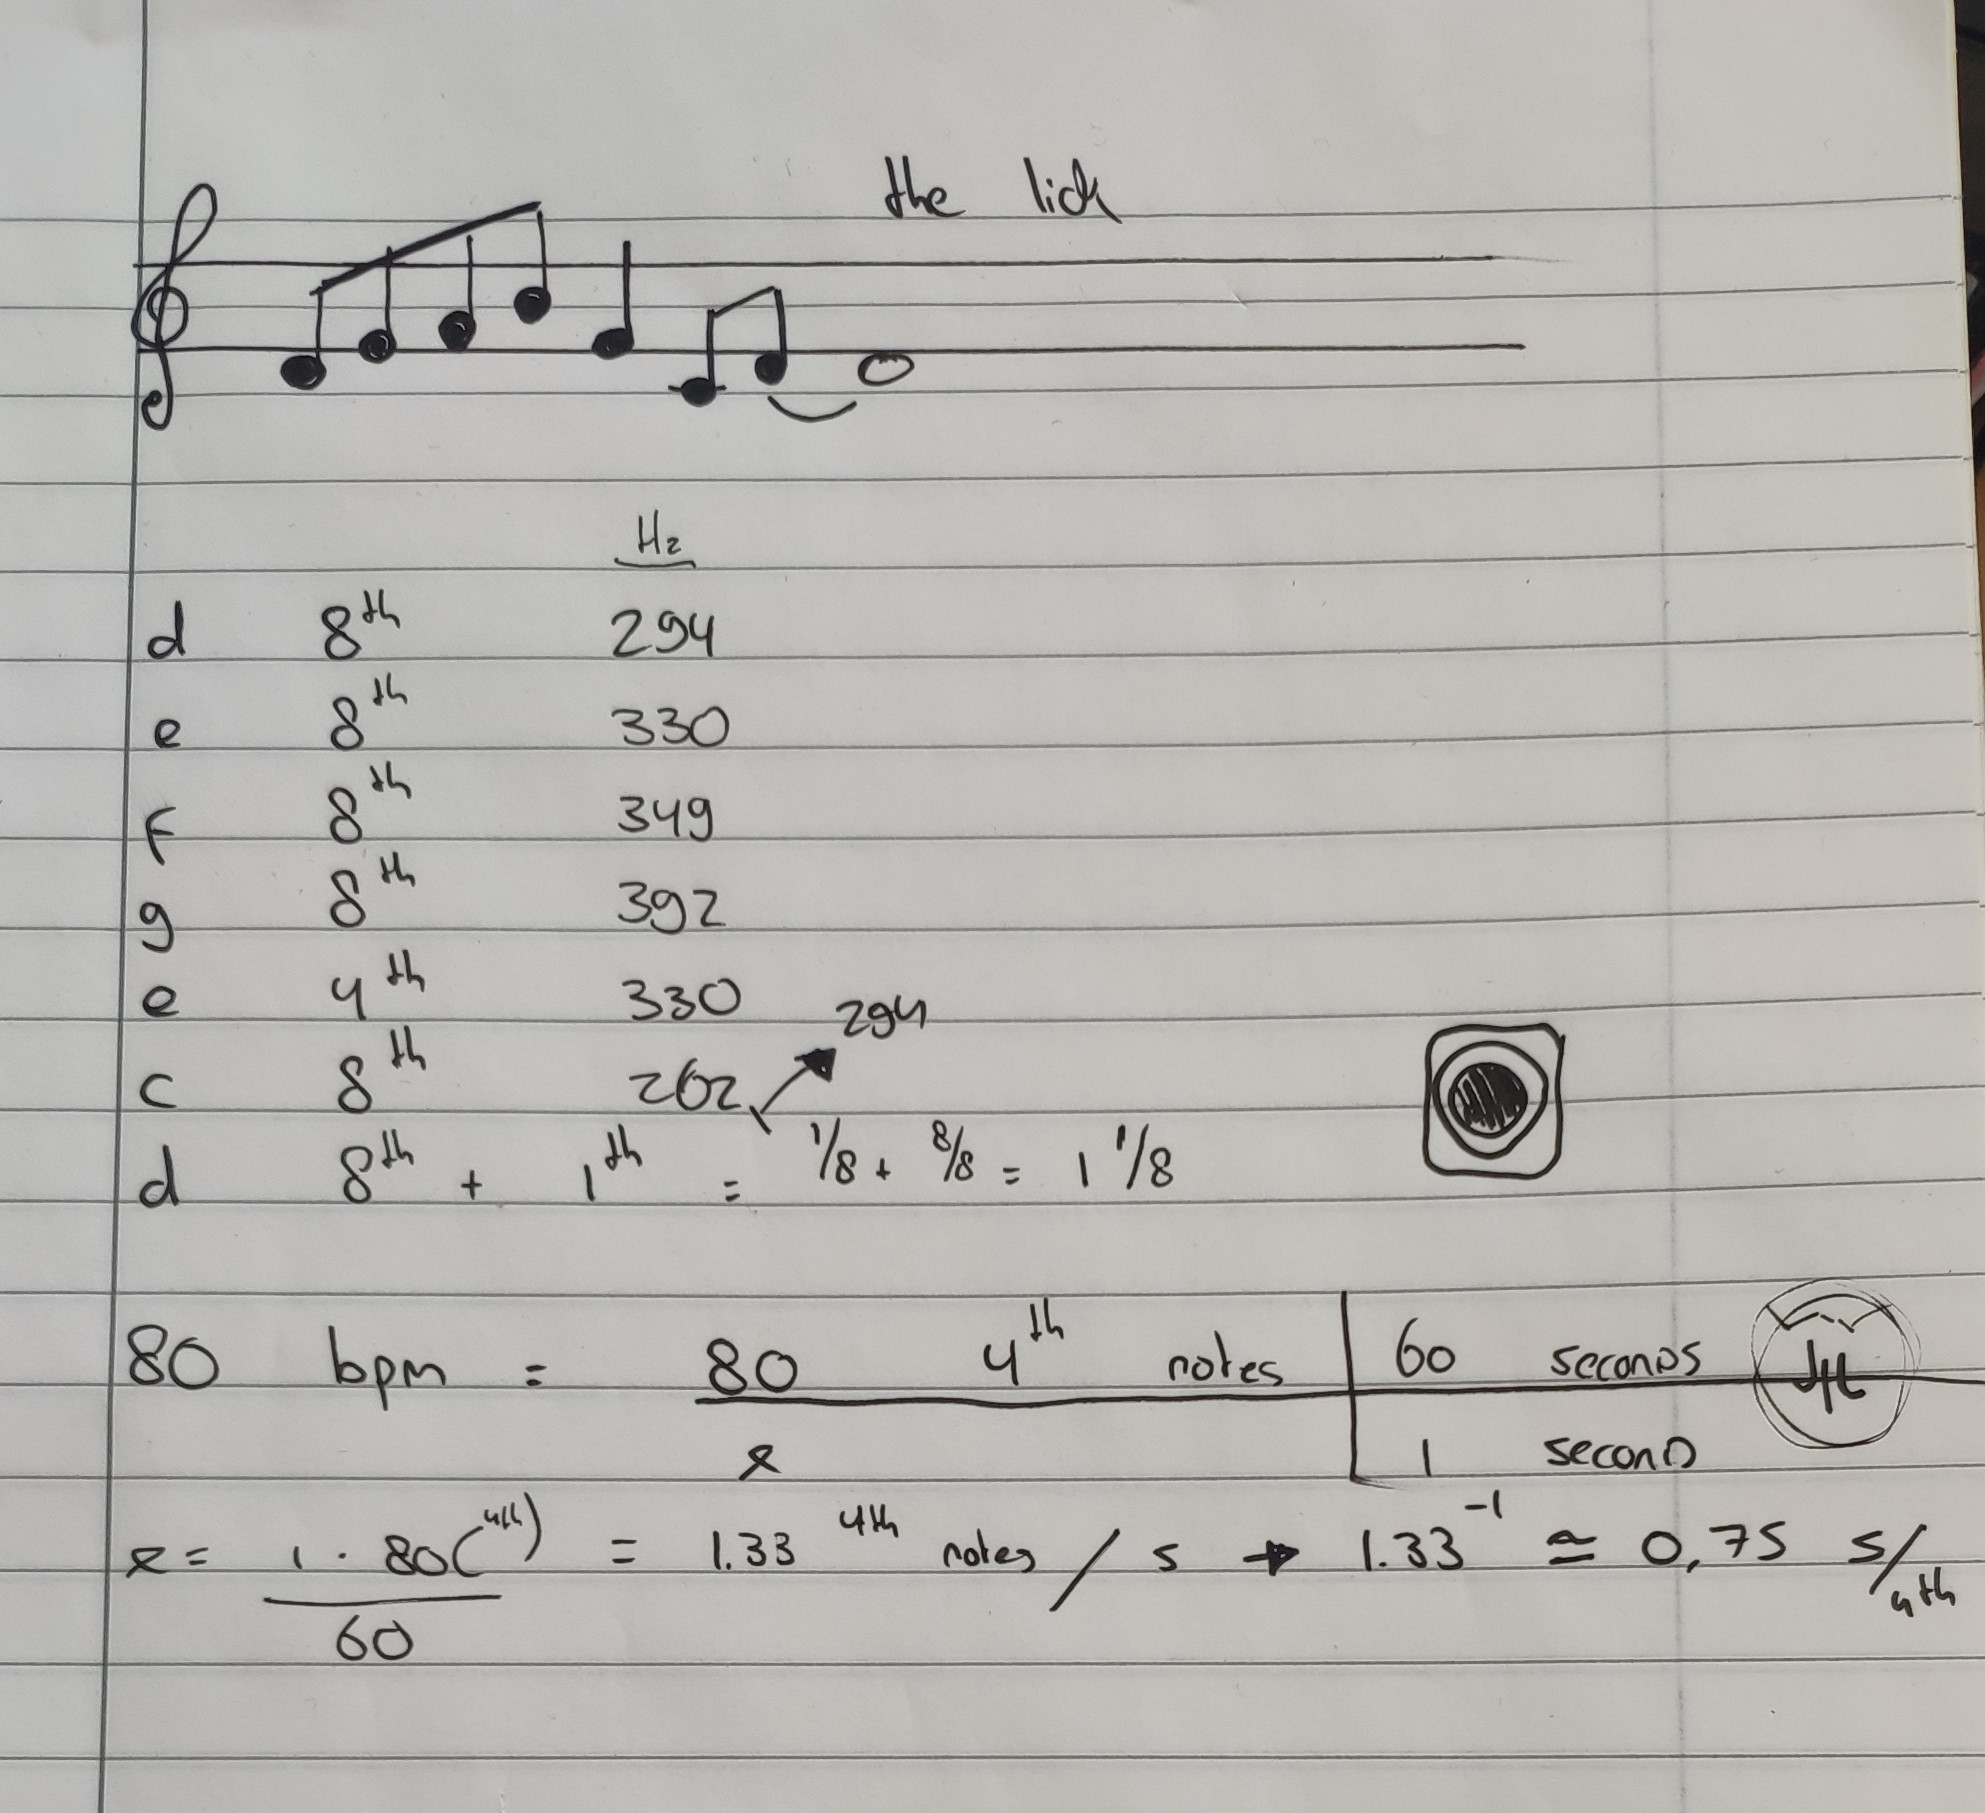 the lick
Hz
d 8th 294
e 8th 330
f 8th 349
g 8th 392
e 4th 330
294
c 8th 262
d 8th + 1th = 1/8 + 8/8 = 1 1/8
80 bpm = 80 4th notes | 60 seconds
x | 1 second
x = 1 · 80(4th) / 60 = 1.33 4th notes / s → 1.33^-1 ≃ 0,75 s/4th